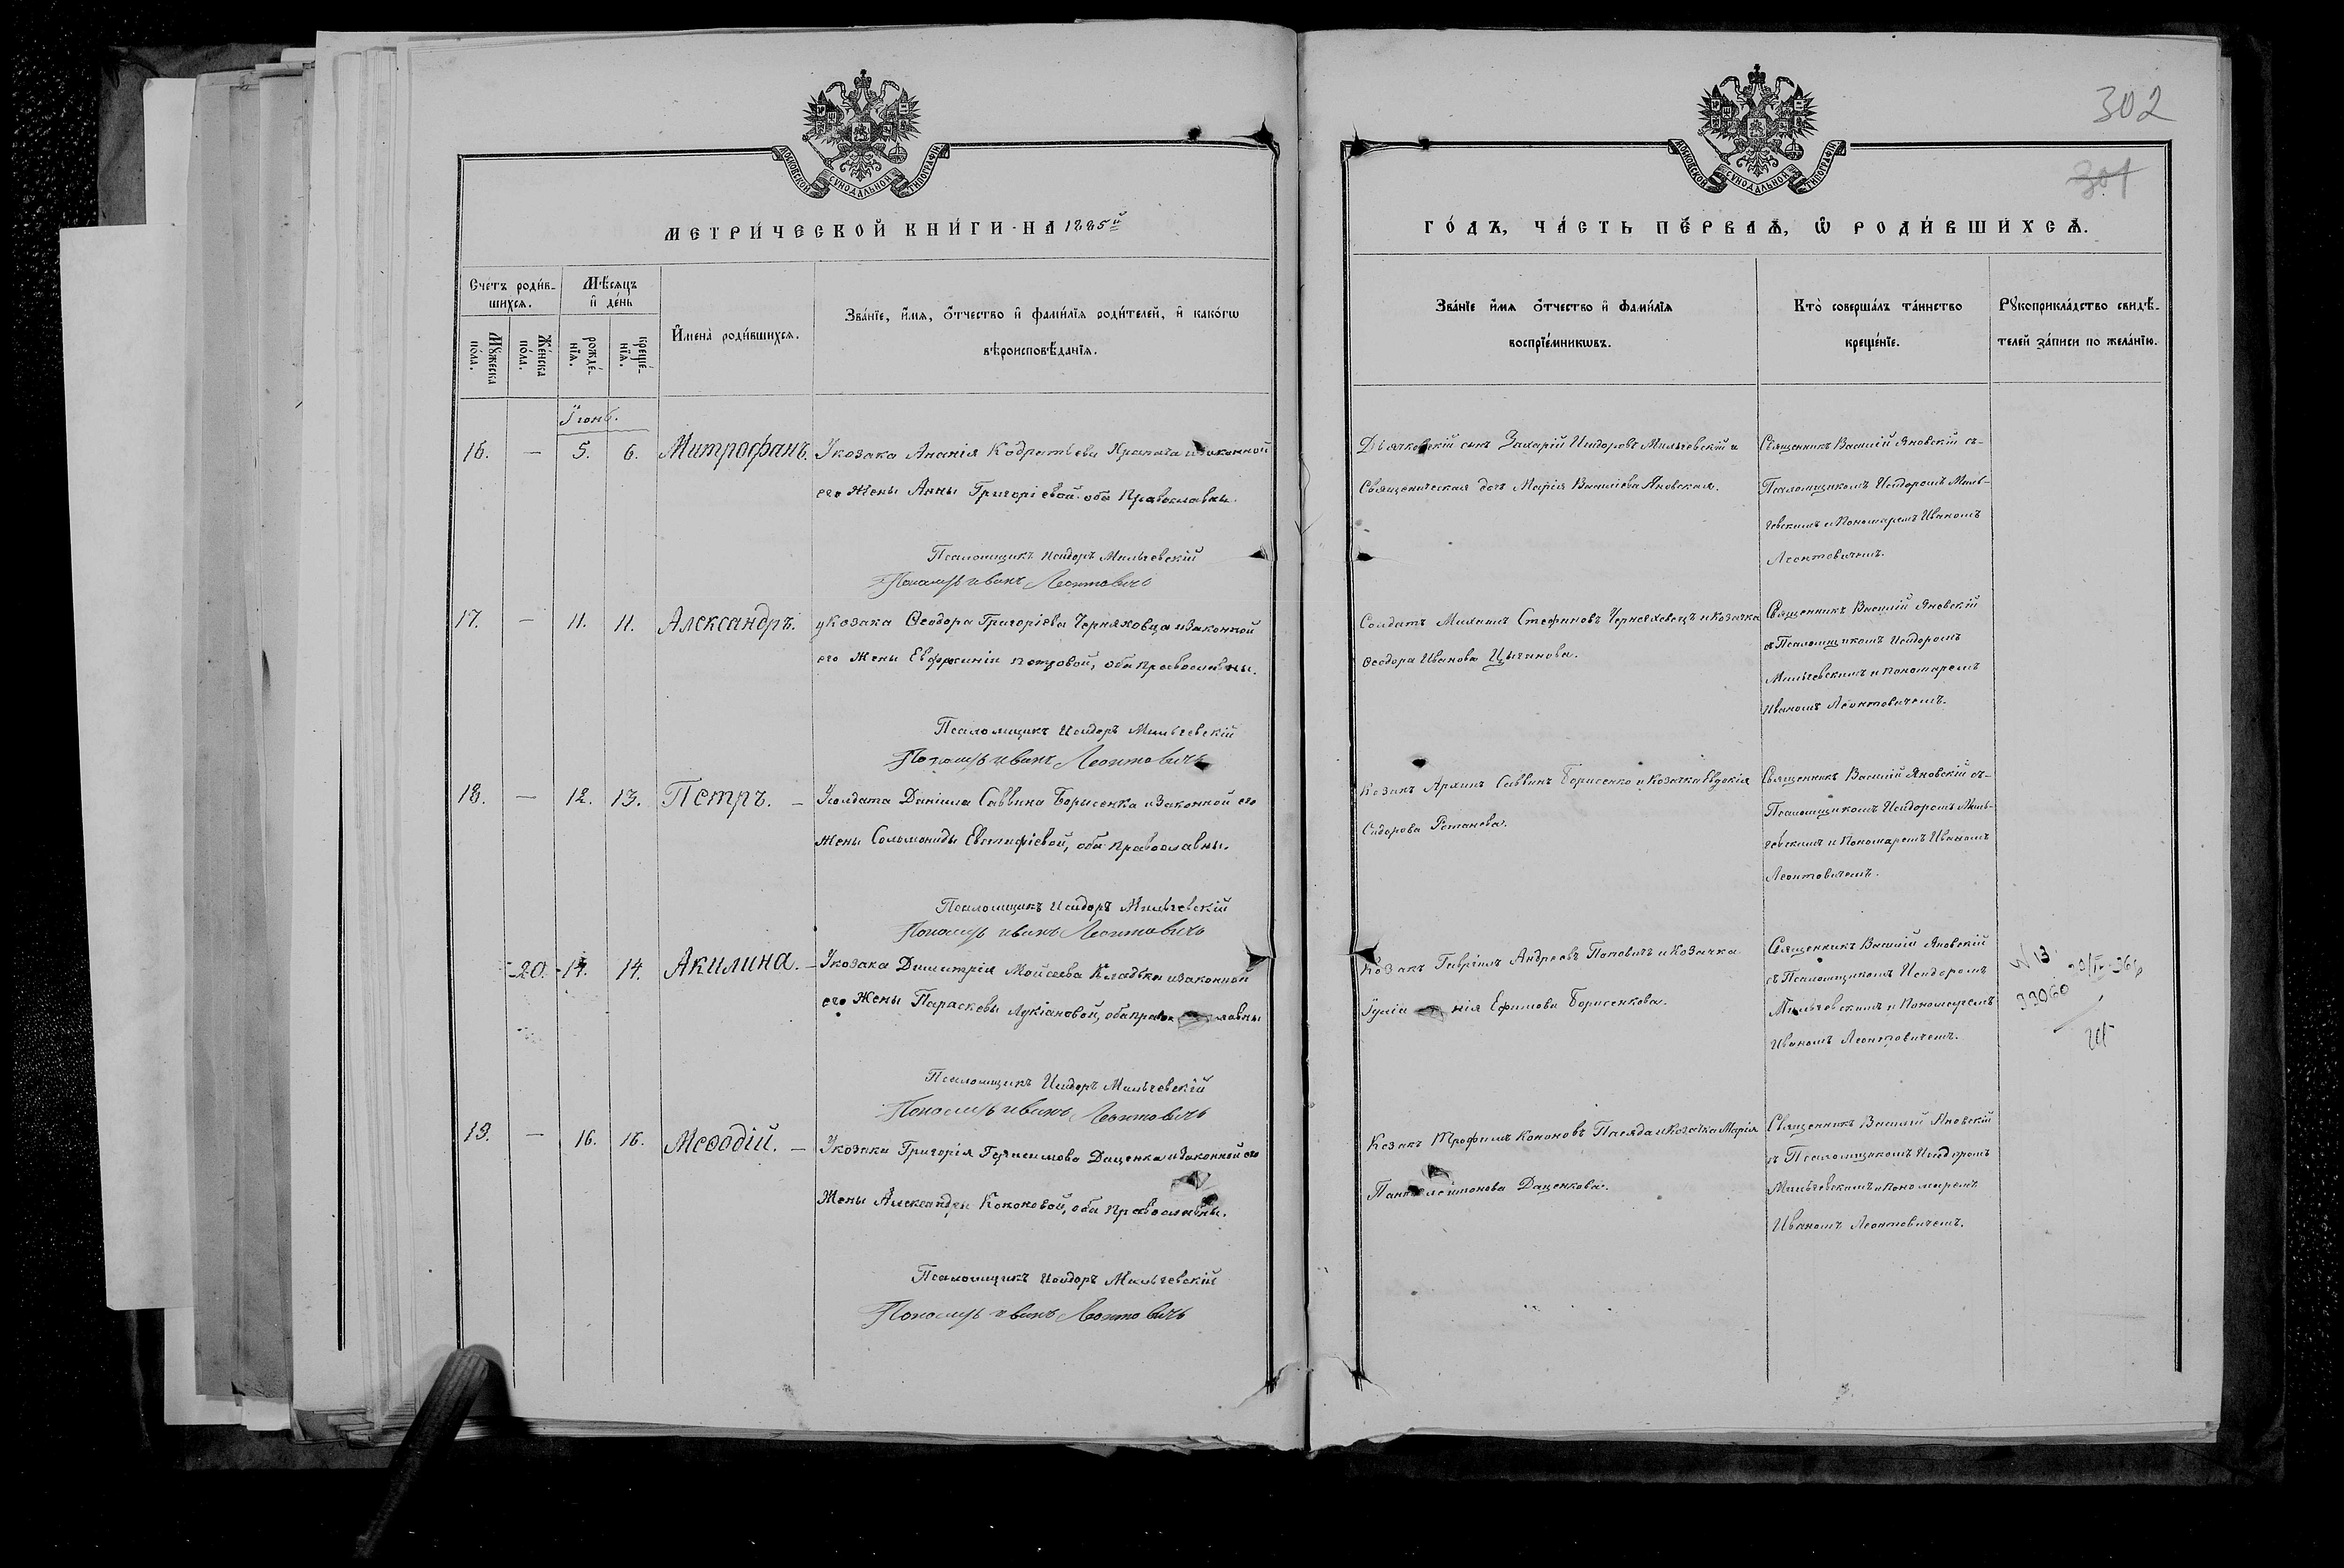 302
301
МОСКОВСКОЙ СѴНОДАЛЬНОЙ ТИПОГРАФІИ
МЕТРИ́ЧЕСКОЙ КНИ́ГИ НА 1885й
Сче́тъ роди́в-
шихся.
Мѣ́сяцъ
и҆ де́нь
Мꙋ́жеска
по́ла.
Же́нска
по́ла.
рожде́-
нїѧ.
креще́-
нїѧ.
И҆мена̀ роди́вшихся.
Зва́нїе, и҆́мя, ѻ҆́тчество и҆ фами́лїя роди́телей, и҆ како́гѡ
вѣроисповѣ́данїя.
Іюнь.
16. — 5. 6. Митрофанъ. У козака Ананія Кодратьева и законной
его жены Анны Григоріевой оба православны.
Псаломщикъ Исидоръ Мильчевскій
Пономарь Иванъ Леонтовичъ
17. — 11. 11. Александръ. У козака Ѳеодора Григоріева Черняховца и законной
его жены Евфросиніи Петровой, оба православны.
Псаломщикъ Исидоръ Мильчевскій
Пономарь Иванъ Леонтовичъ
18. — 12. 13. Петръ. — У солдата Даніила Саввина Борисенка и законной его
жены Соломониды Евстафіевой, оба православны.
Псаломщикъ Исидоръ Мильчевскій
Пономарь Иванъ Леонтовичъ
20. 14. 14. Акилина. — У козака Димитрія Мойсеева Кладька и законной
его жены Параскевы Лукіановой, оба православны
Псаломщикъ Исидоръ Мильчевскій
Пономарь Иванъ Леонтовичъ
19. — 16. 16. Меѳодій. — У козака Григорія Герасимова Даценка и законной его
жены Александры Кононовой, оба православны.
Псаломщикъ Исидоръ Мильчевскій
Пономарь Иванъ Леонтовичъ
МОСКОВСКОЙ СѴНОДАЛЬНОЙ ТИПОГРАФІИ
ГО́ДЪ, ЧА́СТЬ ПЕ́РВАЯ, Ѡ҆ РОДИ́ВШИХСЯ.
Зва́нїе и҆́мя ѻ҆́тчество и҆ фами́лїя
воспрїе́мникѡвъ.
Кто̀ соверша́лъ та́инство
креще́нїе.
Рꙋкоприкла́дство свидѣ́-
телей за́писи по жела́нїю.
Дьячковскій сынъ Захарій Исидоровъ Мильчевскій и
Священическая дочь Марія Василіева Яновская.
Священникъ Василій Яновскій съ-
Псаломщикомъ Исидоромъ Миль-
чевскимъ и Пономаремъ Иваномъ
Леонтовичемъ.
Солдатъ Михаилъ Стефановъ Черняховецъ и козачка
Ѳеодора Иванова Цыганова.
Священникъ Василій Яновскій
съ Псаломщикомъ Исидоромъ
Мильчевскимъ и Пономаремъ
Иваномъ Леонтовичемъ.
Козакъ Архипъ Саввинъ Борисенко и козачка Евдокія
Сидорова
Священникъ Василій Яновскій съ-
Псаломщикомъ Исидоромъ Миль-
чевскимъ и Пономаремъ Иваномъ
Леонтовичемъ.
Козакъ Гавріилъ Андреевъ Поповичъ и козачка
Іуліанія Ефимова Борисенкова.
Священникъ Василій Яновскій
съ Псаломщикомъ Исидоромъ
Мильчевскимъ и Пономаремъ
Иваномъ Леонтовичемъ.
Козакъ Трофимъ Кононовъ и козачка Марія
Пантелеимонова Даценкова.
Священникъ Василій Яновскій
съ Псаломщикомъ Исидоромъ
Мильчевскимъ и Пономаремъ
Иваномъ Леонтовичемъ.